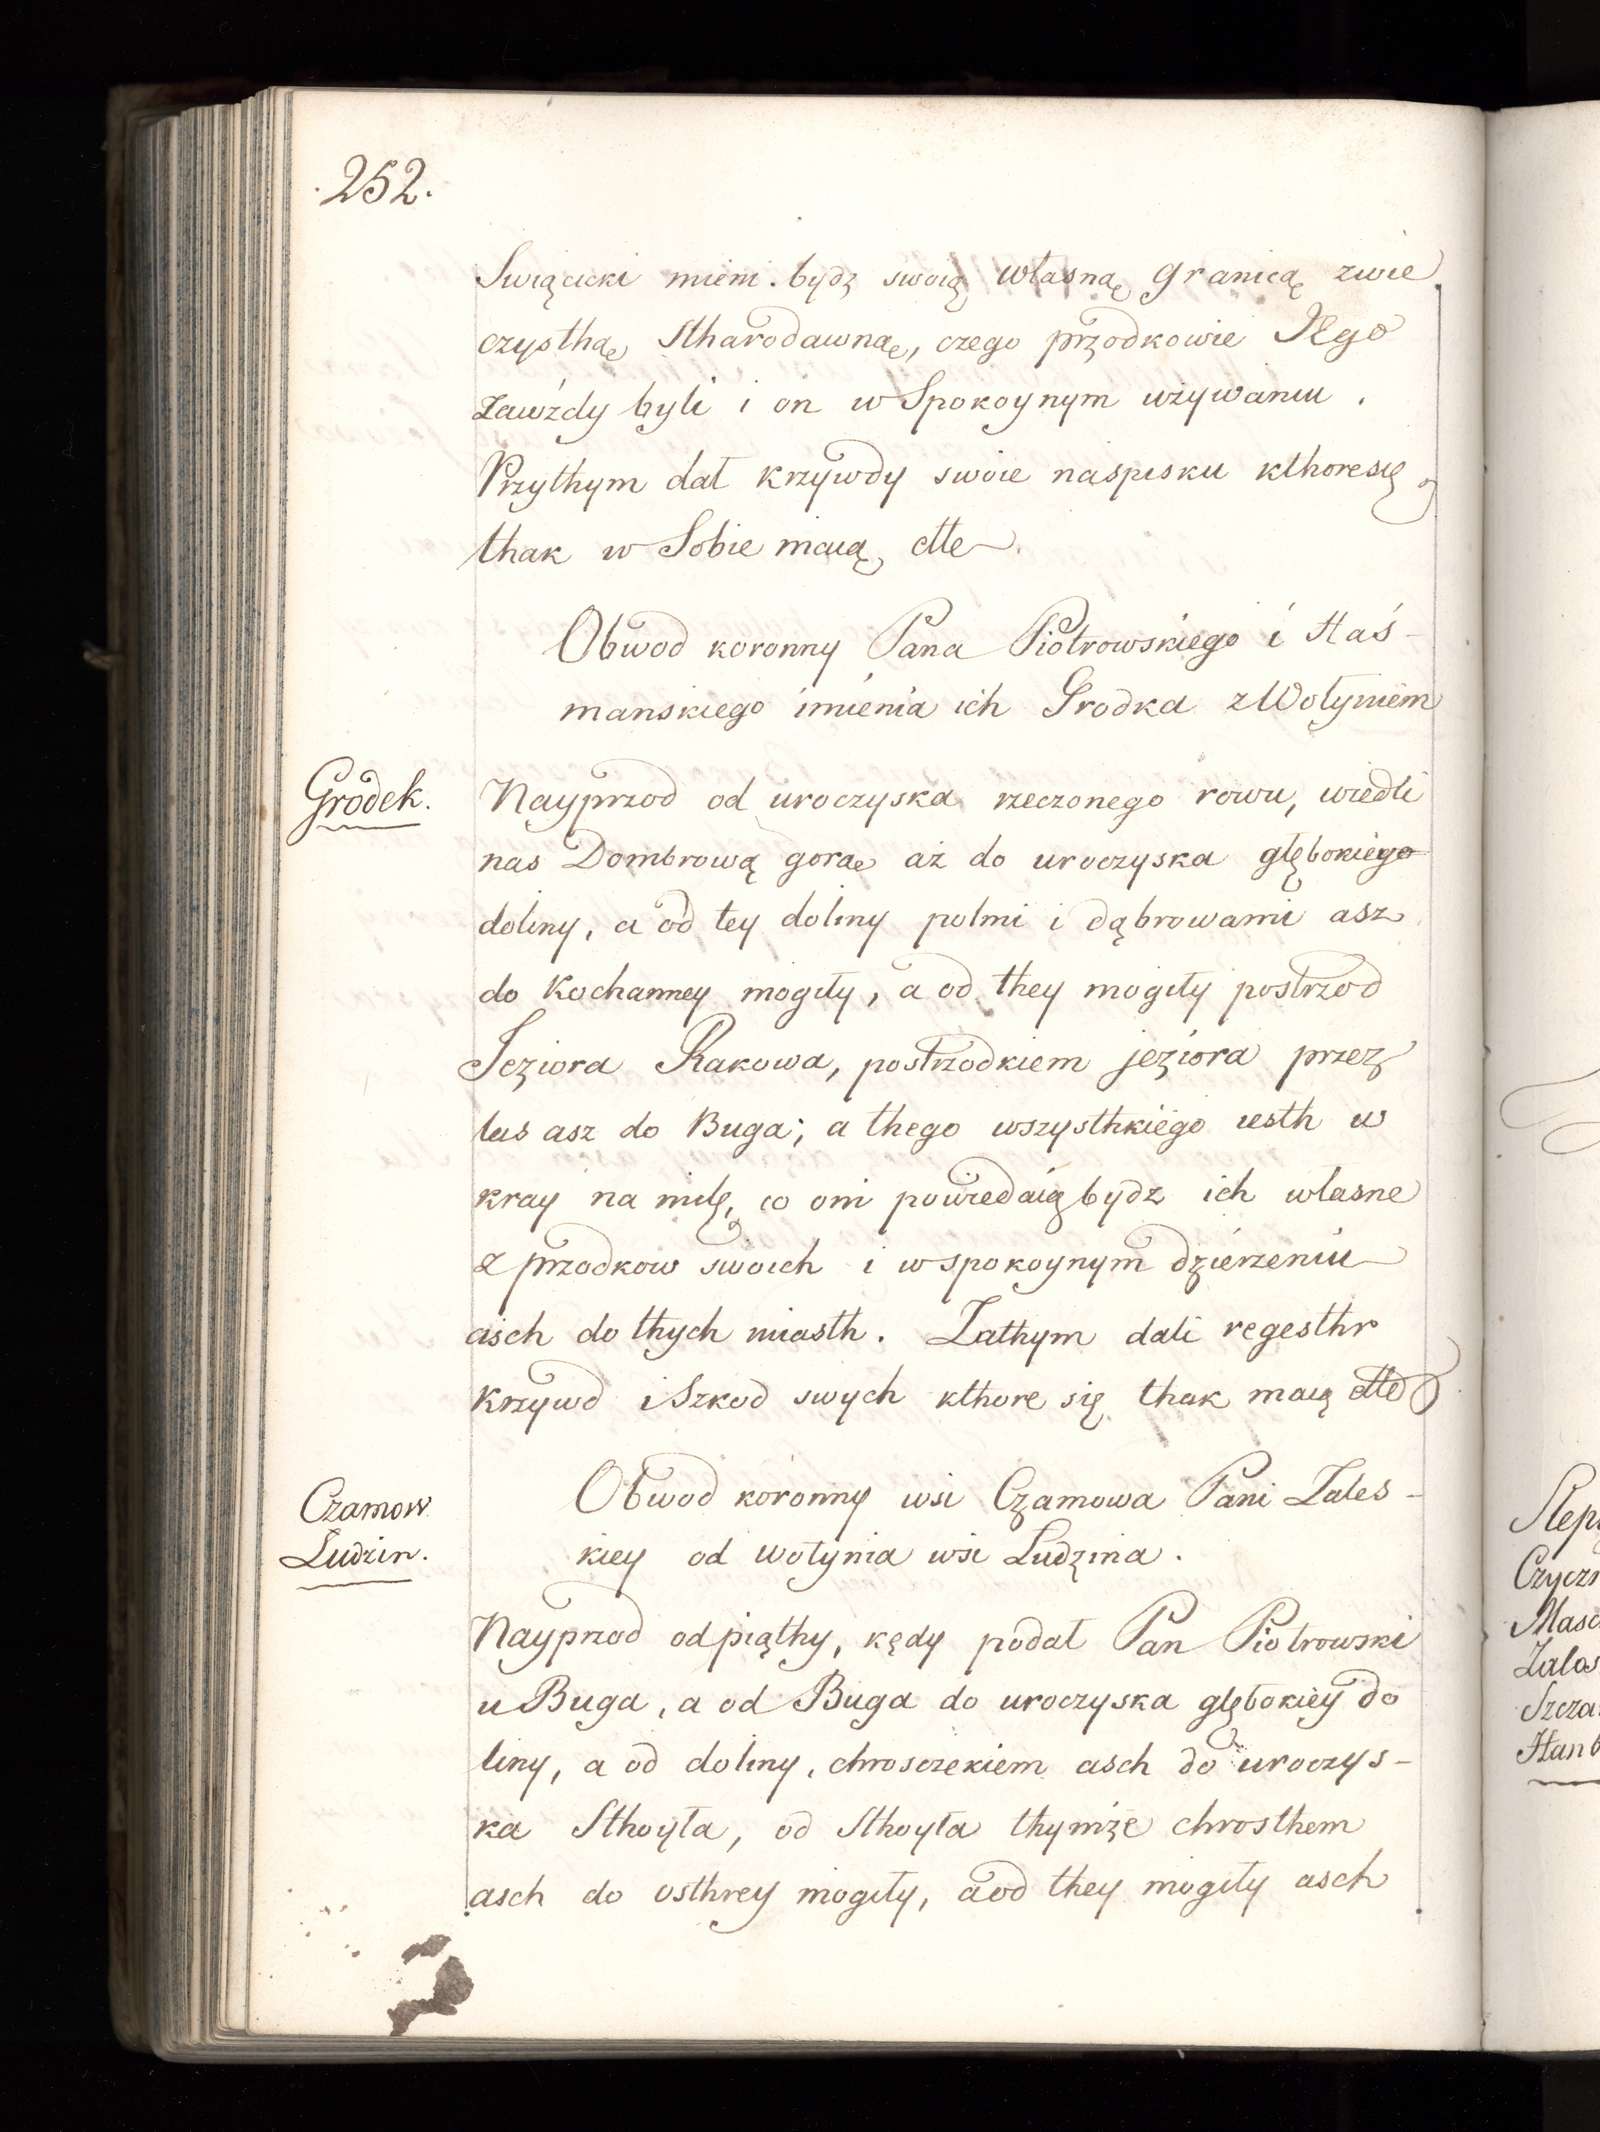 .252.
Swiącicki mieni bydz swoią własnaę granicaę zwie
czysthaę stharodawnaę, czego przodkowie Jego
zawżdy byli i on w Spokoynym używaniu.
Przythym dał krzywdy swoie naspisku kthoresię
thak w Sobie maią etc
Obwod koronny Pana Piotrowskiego i Haś-
manskiego imienia ich Grodka z Wołyniem
Grodek.
Nayprzod od uroczyska rzeczonego rowu, wiedli
nas Dombrową goraę aż do uroczyska głębokiego
doliny, a od tey doliny polmi i dąbrowami asz
do Kochanney mogiły, a od they mogiły postrzod
Jeziora Rakowa, postrzodkiem jeziora przez
las asz do Buga; a thego wszysthkiego iesth w
kray na milę, co oni powiedaią bydz ich własne
z przodkow swoich i w spokoynym dzierzeniu
asch do thych miasth. Zathym dali regesthr
krzywd i Szkod swych kthore się thak maią etc
Czamow
Ludzin.
Obwod koronny wsi Czamowa Pani Zales-
kiey od wołynia wsi Ludzina.
Nayprzod odpiąthy, kędy podał Pan Piotrowski
u Buga, a od Buga do uroczyska głębokiey do
liny, a od doliny, chrosczekiem asch do uroczys-
ka Sthoyła, od Sthoyła thymże chrosthem
asch do osthrey mogiły, a od they mogiły asch